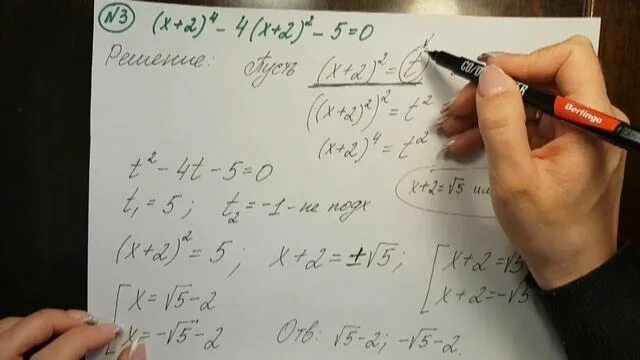 №3 (x+2)⁴ - 4(x+2)² - 5 = 0
Решение: Пусть (x+2)² = t
((x+2)²)² = t²
(x+2)⁴ = t²
t² - 4t - 5 = 0
x+2 = √5 или
t₁ = 5; t₂ = -1 - не подх
(x+2)² = 5; x+2 = ±√5; [ x+2 = √5
x+2 = -√5
[ x = √5 - 2
x = -√5 - 2
Отв: √5 - 2; -√5 - 2.
Berlingo